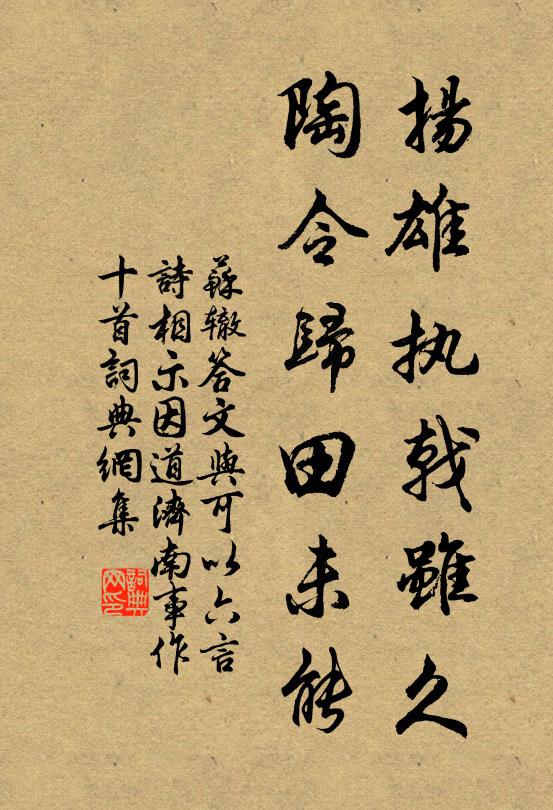 揚雄执戟雖久
陶令歸田未能
蘇辙答文與可以六言
詩相示因道濟南事作
十首詞典網集
詞典网印